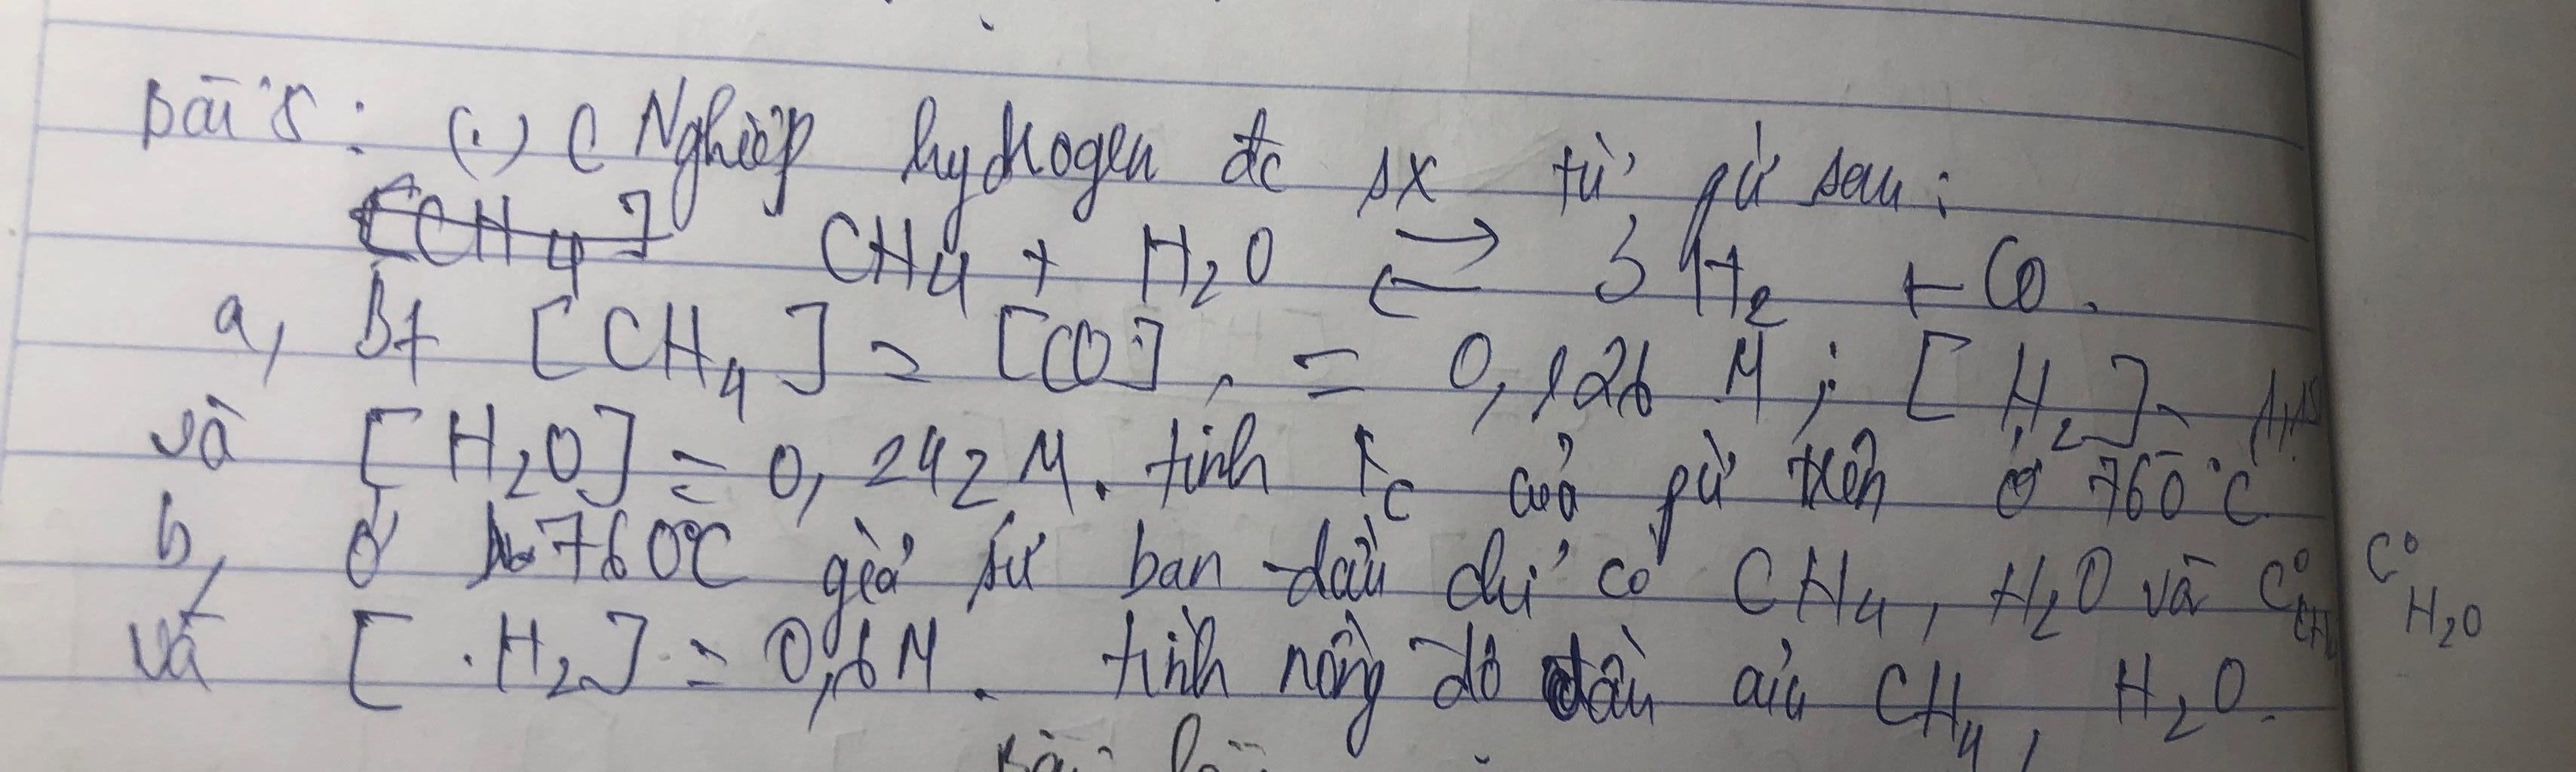 Bài 5 : (.) C Nghiệp hydrogen đc sx từ pứ sau :
[CH4] CH4 + H2O ⇌ 3 H2 + CO.
a, Bt [CH4] = [CO] = 0,126 M ; [H2] =
và [H2O] = 0,242 M. tính Kc của pứ trên ở 760°C
b, Ở 760°C giả sử ban đầu chỉ có CH4, H2O và C°CH4 C°H2O
và [H2] = 0,6M. tính nồng độ đầu của CH4, H2O.